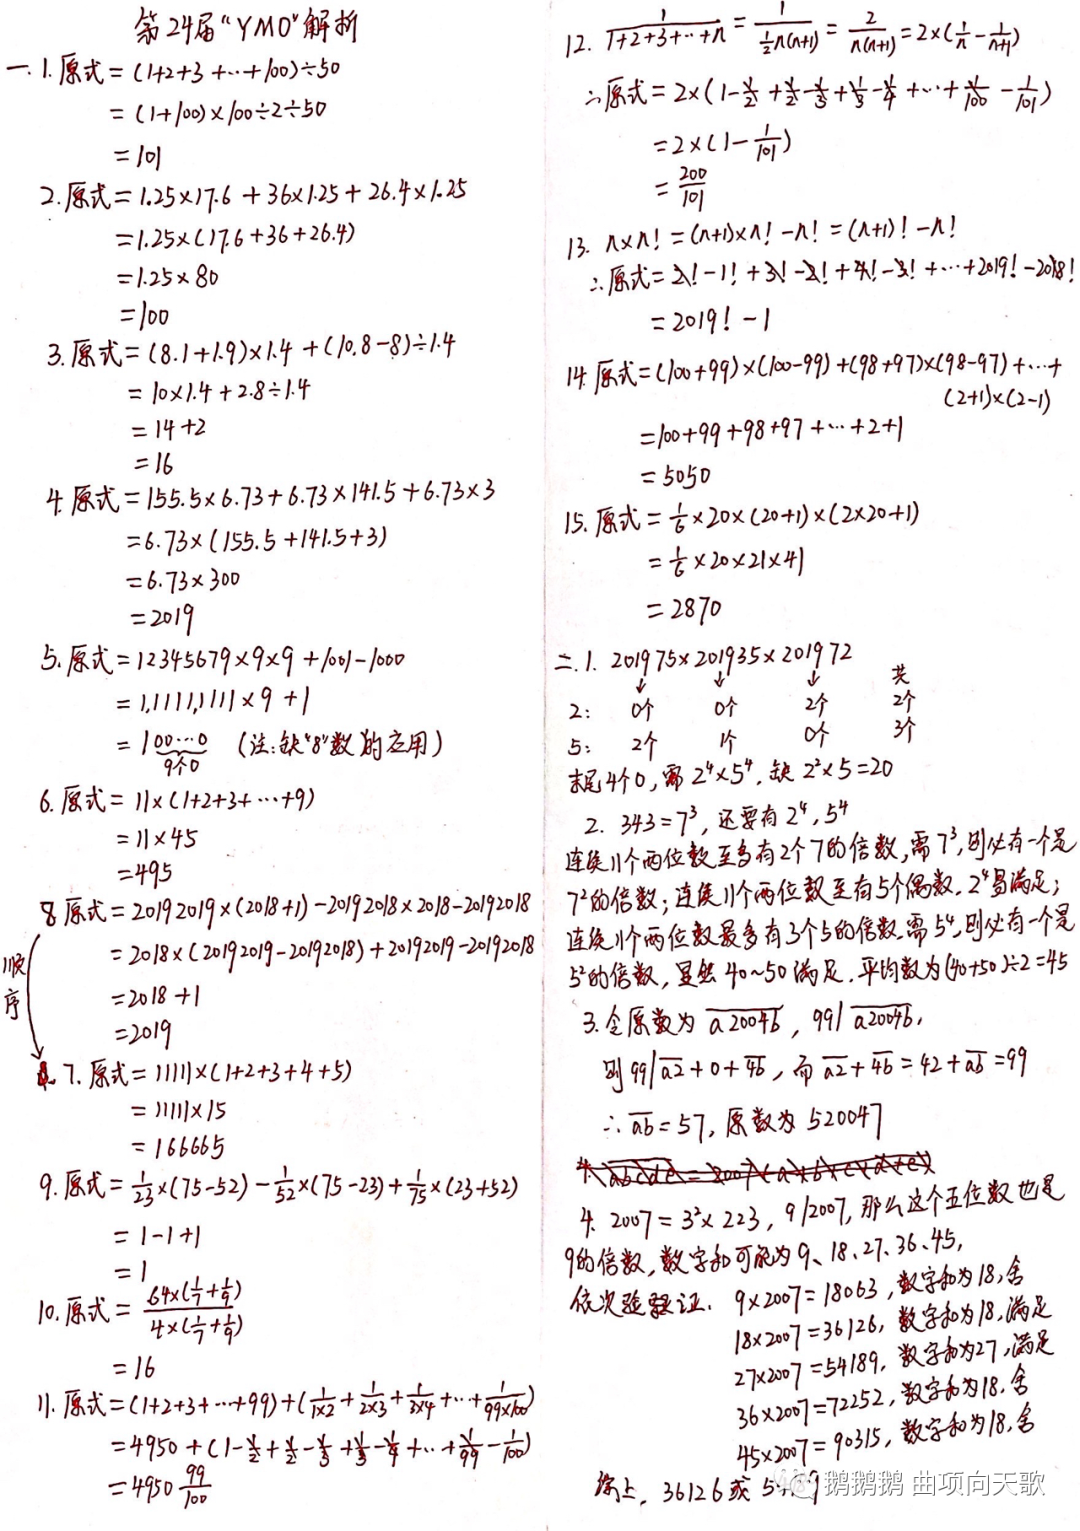 第24届“YMO”解析
一. 1. 原式=(1+2+3+…+100)÷50
=(1+100)×100÷2÷50
=101
2. 原式=1.25×17.6+36×1.25+26.4×1.25
=1.25×(17.6+36+26.4)
=1.25×80
=100
3. 原式=(8.1+1.9)×1.4+(10.8-8)÷1.4
=10×1.4+2.8÷1.4
=14+2
=16
4. 原式=155.5×6.73+6.73×141.5+6.73×3
=6.73×(155.5+141.5+3)
=6.73×300
=2019
5. 原式=12345679×9×9+1001-1000
=111111111×9+1
=100…0 (注:缺“8”数的应用)
9个0
6. 原式=11×(1+2+3+…+9)
=11×45
=495
8 原式=20192019×(2018+1)-20192018×2018-20192018
=2018×(20192019-20192018)+20192019-20192018
=2018+1
=2019
顺序
7. 原式=11111×(1+2+3+4+5)
=11111×15
=166665
9. 原式=1/23×(75-52)-1/52×(75-23)+1/75×(23+52)
=1-1+1
=1
10. 原式=64×(1/7+1/9)/4×(1/7+1/9)
=16
11. 原式=(1+2+3+…+99)+(1/1×2+1/2×3+1/3×4+…+1/99×100)
=4950+(1-1/2+1/2-1/3+1/3-1/4+…+1/99-1/100)
=4950 99/100
12. 1/1+2+3+…+n=1/½n(n+1)=2/n(n+1)=2×(1/n-1/n+1)
∴原式=2×(1-1/2+1/2-1/3+1/3-1/4+…+1/100-1/101)
=2×(1-1/101)
=200/101
13. n×n!=(n+1)×n!-n!=(n+1)!-n!
∴原式=2!-1!+3!-2!+4!-3!+…+2019!-2018!
=2019!-1
14. 原式=(100+99)×(100-99)+(98+97)×(98-97)+…+
(2+1)×(2-1)
=100+99+98+97+…+2+1
=5050
15. 原式=1/6×20×(20+1)×(2×20+1)
=1/6×20×21×41
=2870
二. 1. 201975×201935×201972
↓ ↓ ↓ 共
2: 0个 0个 2个 2个
5: 2个 1个 0个 3个
末尾4个0,需2⁴×5⁴,缺2²×5=20
2. 343=7³,还要有2⁴,5⁴
连续11个两位数至多有2个7的倍数,需7³,则必有一个是
7²的倍数;连续11个两位数至有5个偶数,2⁴易满足;
连续11个两位数最多有3个5的倍数,需5⁴,则必有一个是
5²的倍数,显然40~50满足.平均数为(40+50)÷2=45
3. 令原数为a2004b,99|a2004b,
则99|a2+0+4b,而a2+4b=42+ab=99
∴ab=57,原数为520047
4. abcde=2007×(a+b+c+d+e)
4. 2007=3²×223,9|2007,那么这个五位数也是
9的倍数,数字和可能为9、18、27、36、45,
依次验证. 9×2007=18063,数字和为18,舍
18×2007=36126,数字和为18,满足
27×2007=54189,数字和为27,满足
36×2007=72252,数字和为18,舍
45×2007=90315,数字和为18,舍
综上,36126或54189
鹅鹅鹅 曲项向天歌